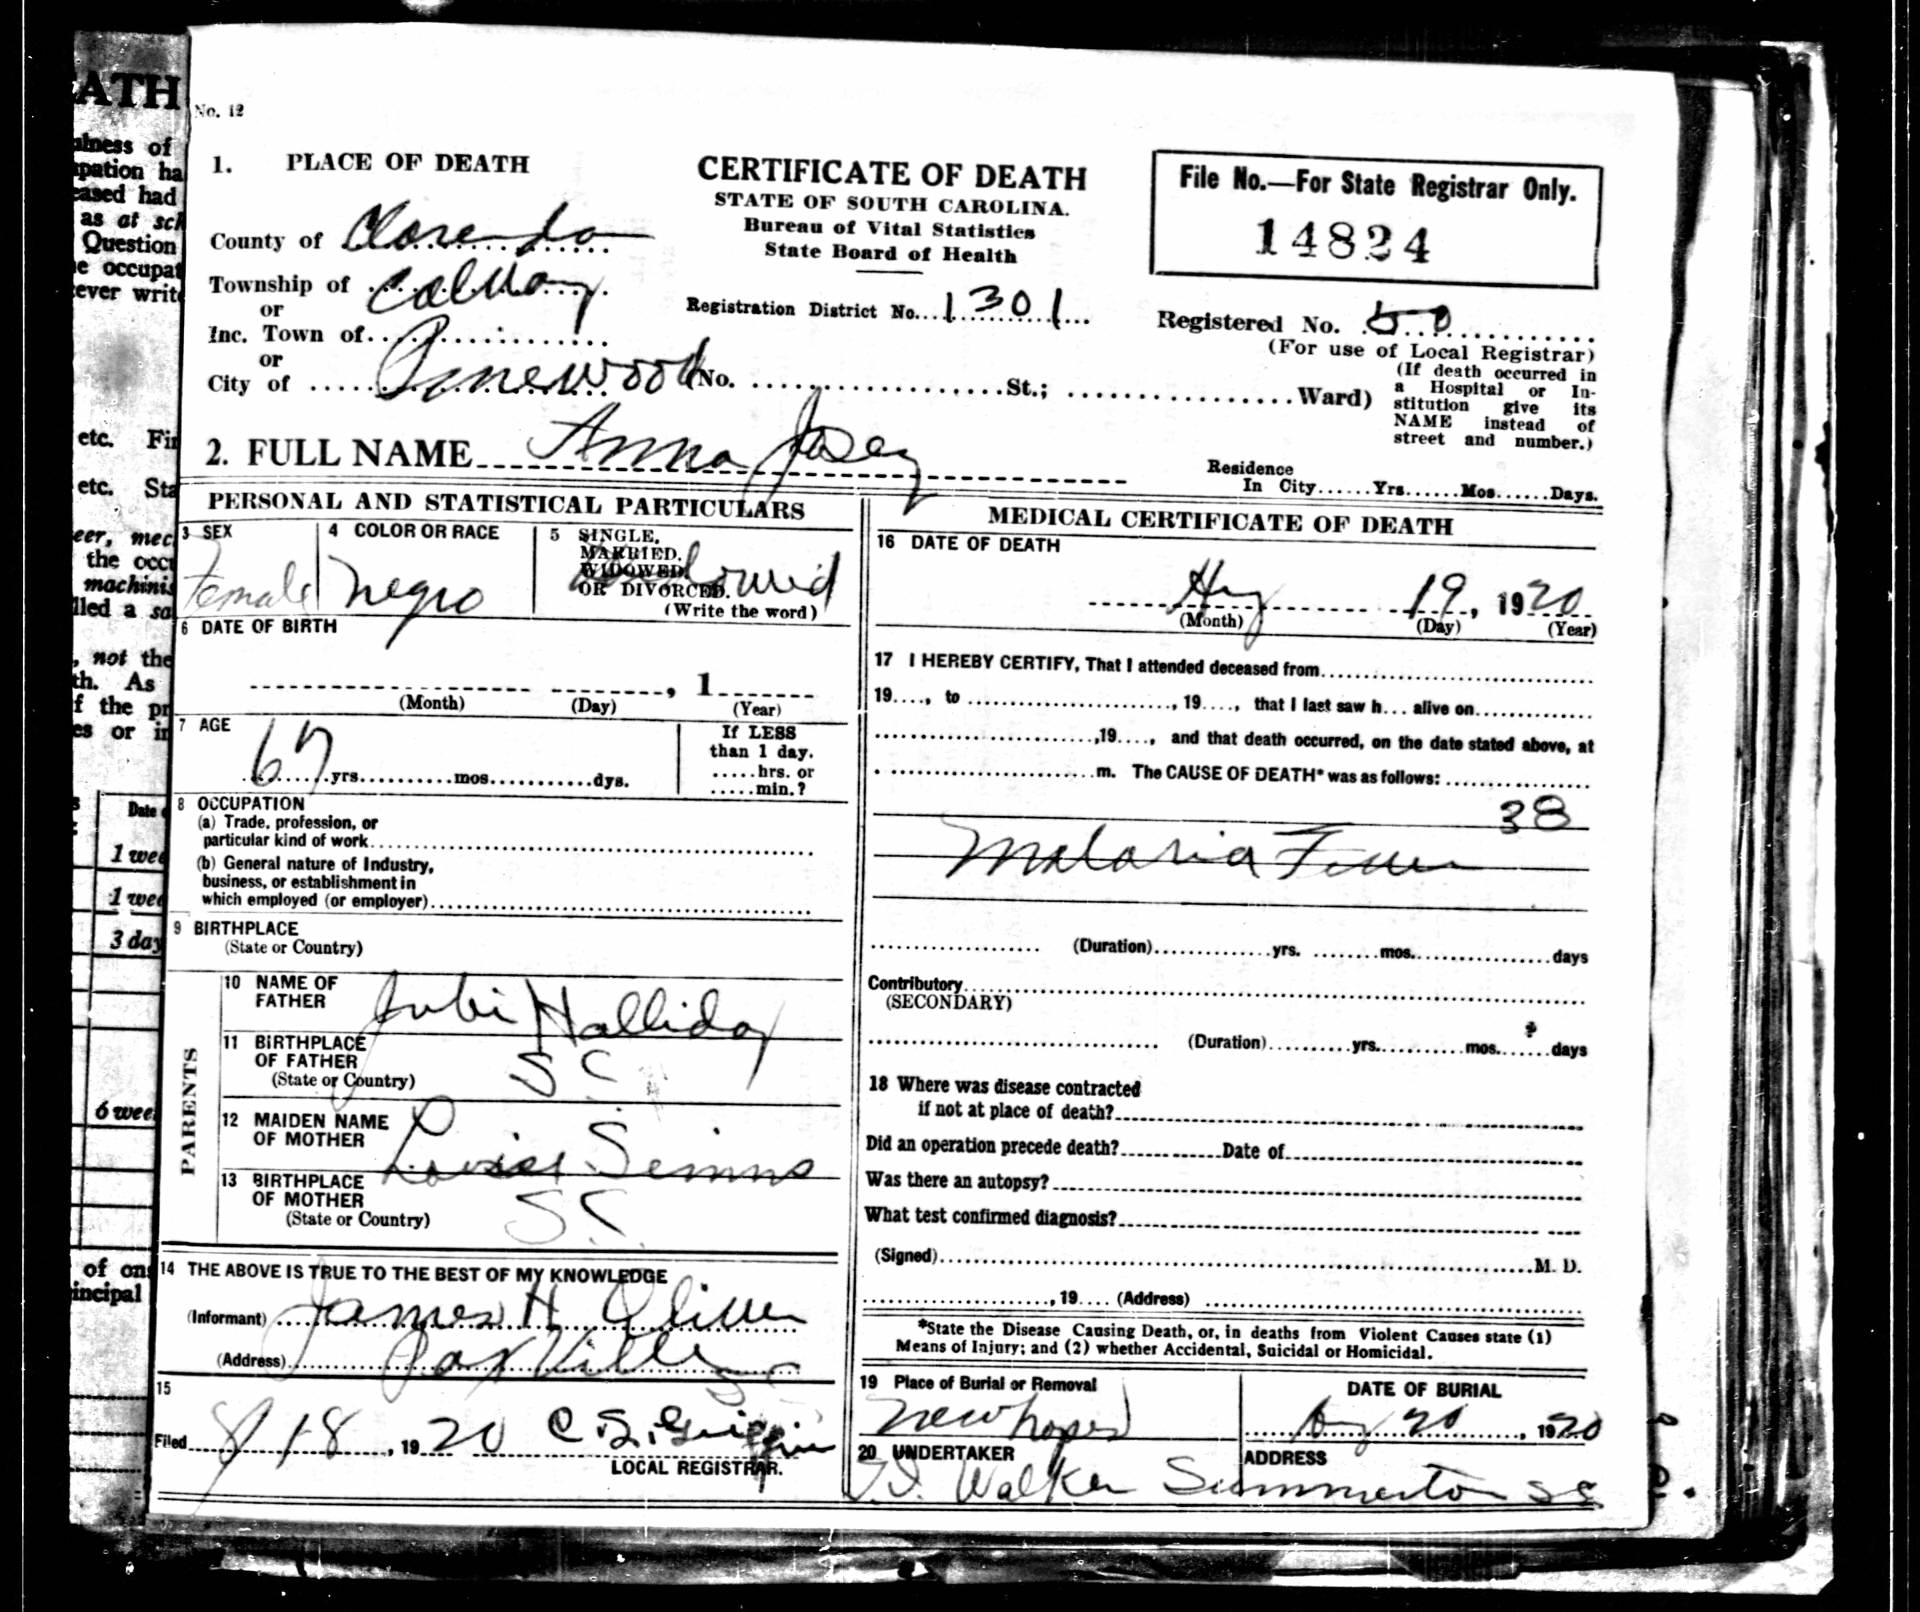 ATH
No. 12
alness of
pation ha
eased had
as at sch
Question
e occupat
ever write
etc. Fir
etc. Sta
eer, mec
the occu
machinis
lled a sa
, not the
th. As
f the pr
es or in
Date
1 wee
1 wee
3 day
6 wee
of ons
incipal
1. PLACE OF DEATH
County of Clarendon
Township of Calvary
or
Inc. Town of
or
City of Pinewood (No. St.; Ward)
CERTIFICATE OF DEATH
STATE OF SOUTH CAROLINA.
Bureau of Vital Statistics
State Board of Health
Registration District No. 1301
File No.—For State Registrar Only.
14824
Registered No. 50
(For use of Local Registrar)
(If death occurred in
a Hospital or In-
stitution give its
NAME instead of
street and number.)
2. FULL NAME Anna Josey
Residence
In City Yrs. Mos. Days.
PERSONAL AND STATISTICAL PARTICULARS
3 SEX
Female
4 COLOR OR RACE
Negro
5 SINGLE,
MARRIED,
WIDOWED,
OR DIVORCED.
Widowed
(Write the word)
6 DATE OF BIRTH
, 1
(Month) (Day) (Year)
7 AGE
67 yrs. mos. dys.
If LESS
than 1 day.
hrs. or
min.?
8 OCCUPATION
(a) Trade, profession, or
particular kind of work
(b) General nature of Industry,
business, or establishment in
which employed (or employer)
9 BIRTHPLACE
(State or Country)
PARENTS
10 NAME OF
FATHER
Halliday
11 BIRTHPLACE
OF FATHER
(State or Country)
S C
12 MAIDEN NAME
OF MOTHER
13 BIRTHPLACE
OF MOTHER
(State or Country)
S.C.
14 THE ABOVE IS TRUE TO THE BEST OF MY KNOWLEDGE
(Informant) James H
(Address) Paxville
15
Filed 8/18, 1920 C. S. Griffin
LOCAL REGISTRAR.
MEDICAL CERTIFICATE OF DEATH
16 DATE OF DEATH
19, 1920
(Month) (Day) (Year)
17 I HEREBY CERTIFY, That I attended deceased from
19, to , 19, that I last saw h... alive on
,19, and that death occurred, on the date stated above, at
m. The CAUSE OF DEATH* was as follows:
38
Malaria Fever
(Duration) yrs. mos. days
Contributory
(SECONDARY)
(Duration) yrs. mos. days
18 Where was disease contracted
if not at place of death?
Did an operation precede death? Date of
Was there an autopsy?
What test confirmed diagnosis?
(Signed) M. D.
, 19 (Address)
*State the Disease Causing Death, or, in deaths from Violent Causes state (1)
Means of Injury; and (2) whether Accidental, Suicidal or Homicidal.
19 Place of Burial or Removal
DATE OF BURIAL
Aug 20, 1920
20 UNDERTAKER
ADDRESS
Walker Summerton SC